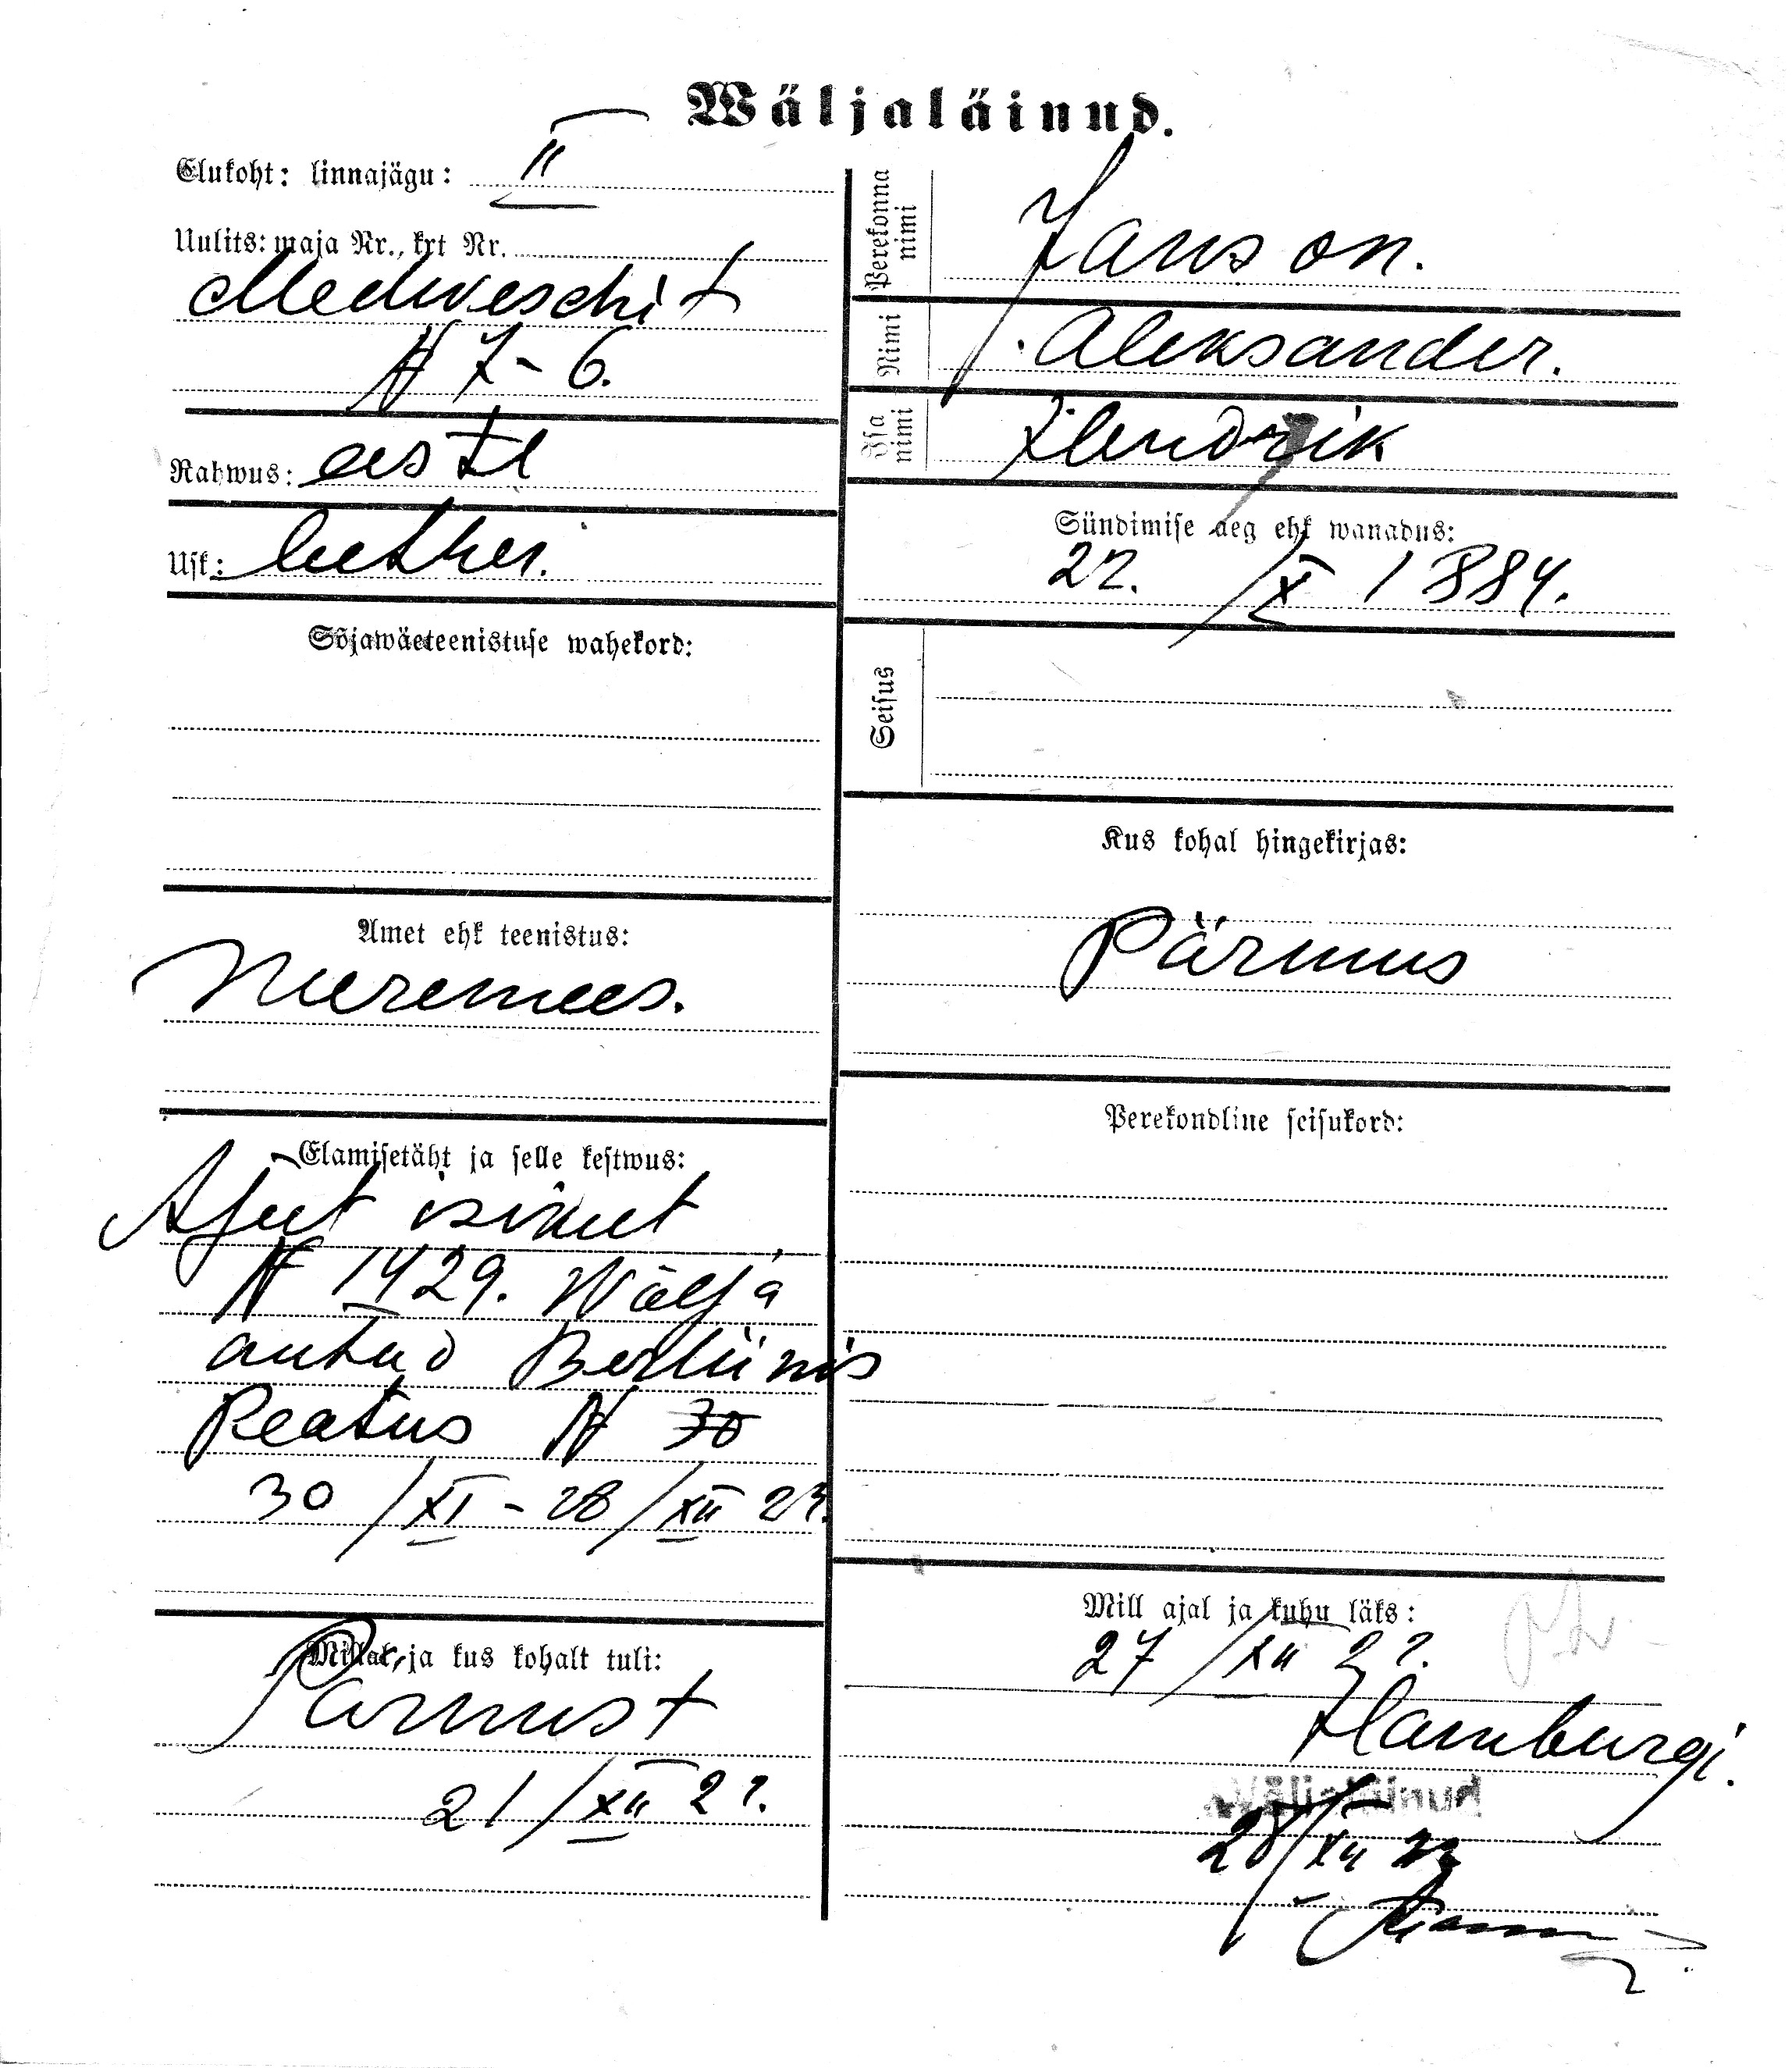 Wäljaläinud.
Elukoht: linnajägu: II
Uulits: maja Nr., krt Nr.
Medweschi t
№ 7-6.
Rahwus: eestl
Usk: luther.
Sõjawäeteenistuse wahekord:
Amet ehk teenistus:
Meremees.
Elamisetäht ja selle kestwus:
Ajut isikut
№ 1429. Wälja
antud Berliinis
Peatus № 30
30/XI - 28/XII
Millal ja kus kohalt tuli:
Pärnust
21/XII 22.
Perekonna nimi
Janson.
Nimi
Aleksander.
Isa nimi
Hendrik
Sündimise aeg ehk wanadus:
22. /X 1884.
Seisus
Kus kohal hingekirjas:
Pärnus
Perekondline seisukord:
Mill ajal ja kuhu läks:
27/XII 22.
Hamburgi.
Väljaläinud
28/XII